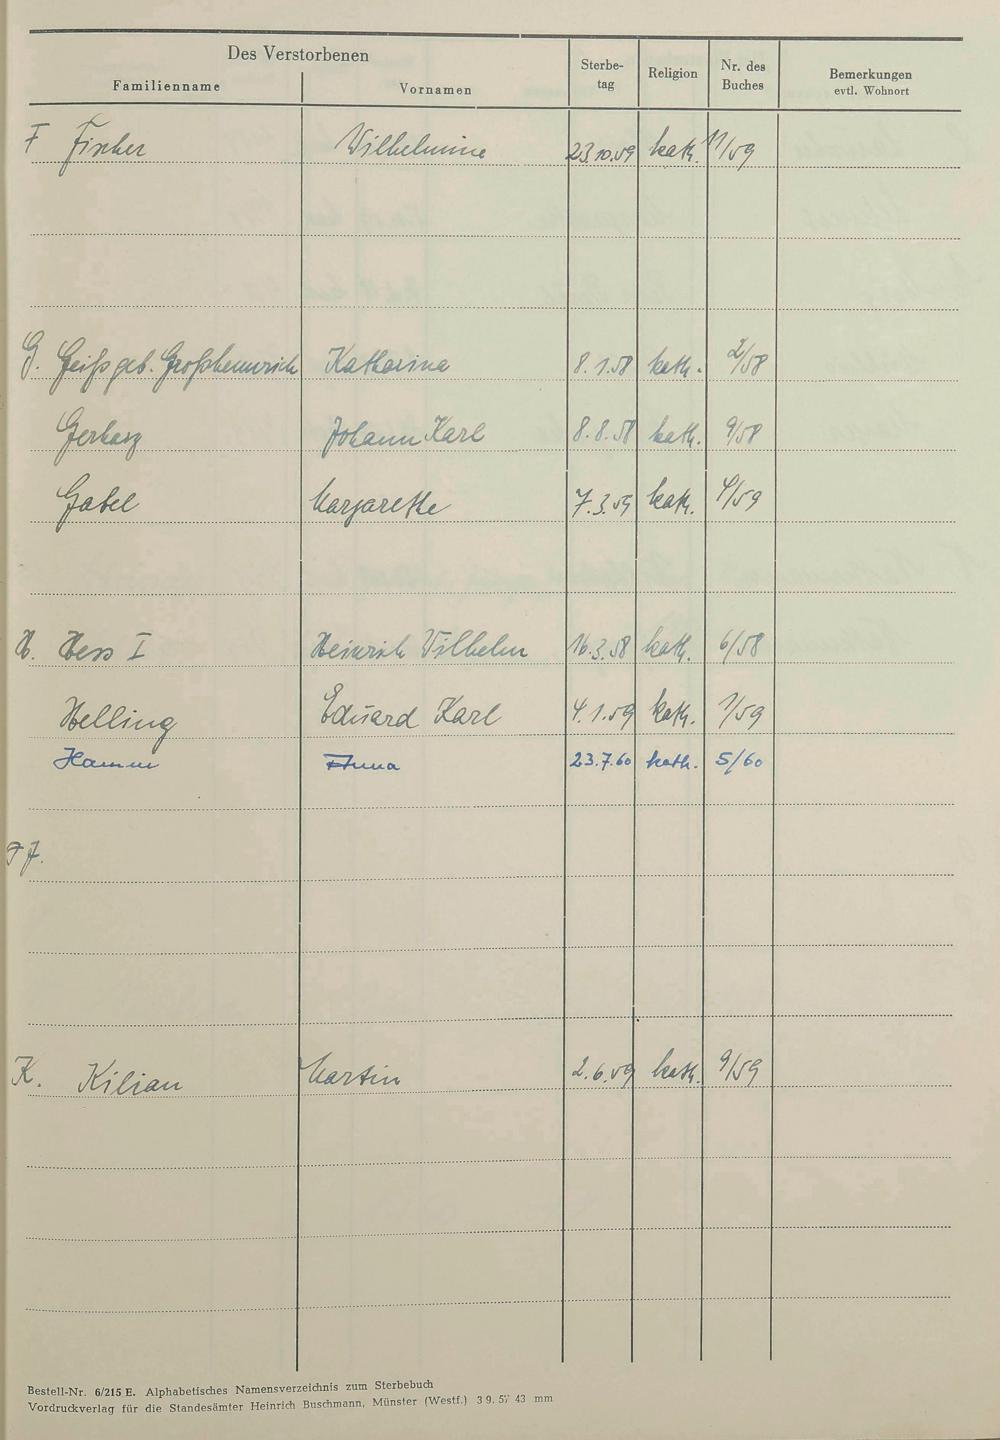 Des Verstorbenen
Familienname Vornamen Sterbe-tag Religion Nr. des Buches Bemerkungen evtl. Wohnort
F Fischer Wilhelmine 23.10.59 kath. 11/59
G. Geiß geb. Großheinrich Katharina 8.1.58 kath. 2/58
Gerharz Johann Karl 8.8.58 kath. 9/58
Gabel Margarethe 7.3.59 kath. 4/59
H. Hess I Heinrich Wilhelm 16.3.58 kath. 6/58
Helling Eduard Karl 4.1.59 kath. 1/59
Hamm Anna 23.7.60 kath. 5/60
J.
K. Kilian Martin 2.6.59 kath. 9/59
Bestell-Nr. 6/215 E. Alphabetisches Namensverzeichnis zum Sterbebuch
Vordruckverlag für die Standesämter Heinrich Buschmann, Münster (Westf.) 3 9. 57 43 mm